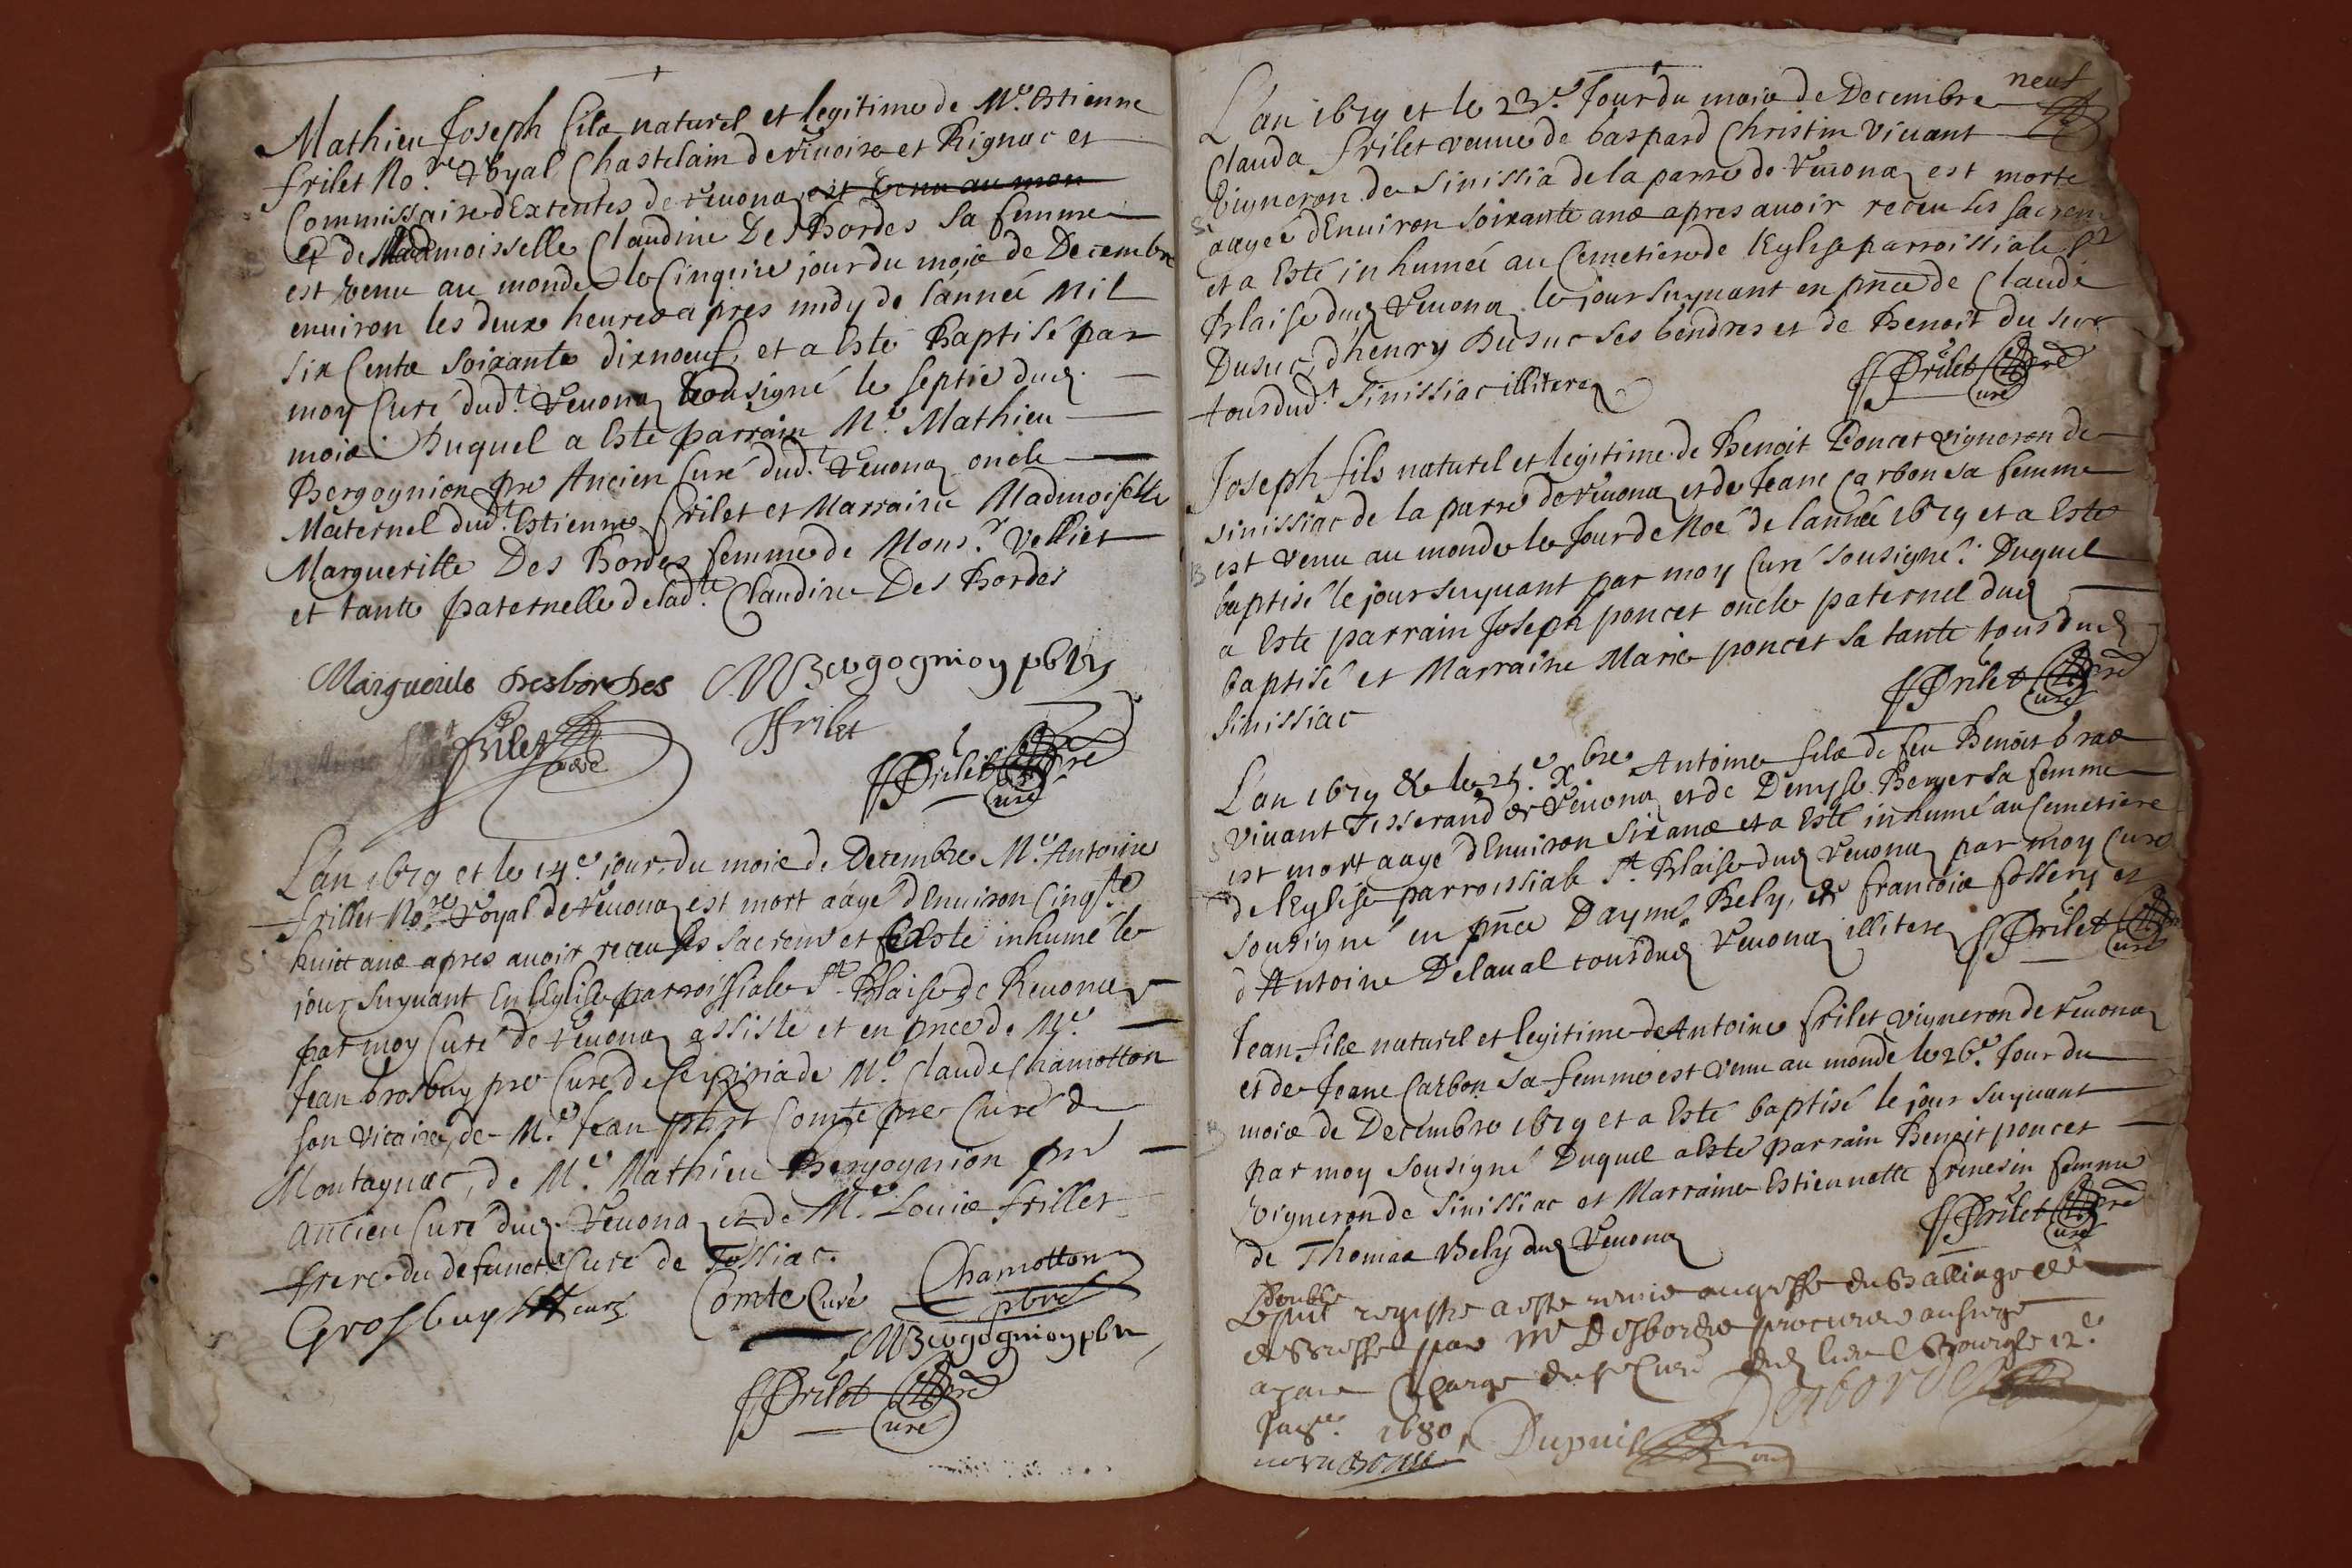 Mathieu Joseph filz naturel et legitime de Mre Estienne
frilet Nore Royal Chastelain de et Rignac et
Commissaire dExtentes de Reuonaz est venu au mon
et de Madmoisselle Claudine DesBordes Sa femme
est venu au monde le Cinqsie jour du mois de Decembre
enuiron les deux heures apres midy de lannée Mil
six Centz soixante dixneuf, et a Esté Baptisé par
moy Curé dudt Reuonaz sousigné le septie dud.
mois. Duquel a Esté parrain Mre Mathieu
Bergognion pre Ancien Curé dudt Reuonaz oncle
Maternel dudt Estienne frilet et Marraine Madmoiselle
Margueritte Des Bordes femme de Monsr Velliet
et tante paternelle de ladte Claudine Des Bordes
Marguerite desbordes MBergognion pbre
Frilet
frilet
JFrilet pre
Curé
Lan 1679 et le 14e jour du mois de Decembre Mre Antoine
frillet Nore Royal de Reuonaz est mort aagé dEnuiron Cinqte
huict ans apres auoir receu les sacrems et a Esté inhumé le
jour suyuant En lEglise parroissiale St Blaise de Reuonaz
par moy Curé de Reuonaz assisté et en pnce de Mre
Jean Grosbuy pre Curé de Ceyziria de Mre Claude Chamotton
son vicaire, de Mre Jean Comte pre Curé de
Montagnac, de Mre Mathieu Bergognion pre
ancien Curé dud. Reuonaz et de Mre Louis frillet
frere du defunct Curé de Tossiac.
Grosbuy curé Comte Curé Chamotton
pbre
MBergognion pbre
JFrilet pre
Curé
neuf
Lan 1679 et le 23e Jour du mois de Decembre
Clauda frilet veuue de Gaspard Christin viuant
Vigneron de Sinissia de la parre de Reuonaz est morte
aagée dEnuiron soixante ans apres auoir receu les sacrem
et a Esté inhumée au Cemetiere de lEglise parroissiale St
Blaise dud Reuonaz le jour suyuant en pnce de Claude
Dusuc, dhenry Dusuc ses Gendres et de Benoit du suc
tous dudt Sinissiac illiterez
JFrilet pre
Curé
Joseph fils naturel et legitime de Benoit Poncet vigneron de
sinissiac de la parre de Reuonaz et de Jeane Carbon sa femme
est venu au monde le Jour de Noé de lannée 1679 et a Esté
baptisé le jour suyuant par moy Curé sousigné. Duquel
a Esté parrain Joseph poncet oncle paternel dud
baptisé et Marraine Marie poncet sa tante tous dud
sinissiac
JFrilet pre
Curé
Lan 1679 & le 25e Xbre Antoine filz de feu Benoit Gras
viuant Tisserand de Reuonaz et de Denyse Berger sa femme
est mort aagé dEnuiron six ans et a Esté inhumé au Cemetiere
de lEglise parroissiale St Blaise dud Reuonaz par moy Curé
sousigné en pnce Daymé Bely, de francois et
dAntoine Delaual tous dud Reuonaz illiterez
JFrilet pre
Curé
Jean filz naturel et legitime de Antoine frilet vigneron de Reuonaz
et de Jeane Carbon sa femme est venu au monde le 26e Jour du
mois de Decembre 1679 et a Esté baptisé le jour suyuant
par moy sousigné Duquel a Esté parrain Benoit poncet
Vigneron de Sinissiac et Marraine Estiennette frenesin femme
de Thomas Bely dud Reuonaz
JFrilet pre
Curé
Double
Le registre a esté remis au greffe du Balliage de
Bresse par Mre Desbordes procureur au siege
ayant Charge du sr Curé dud lieu Bourg le 12e
Jane. 1680
Desbordes
Dupuis